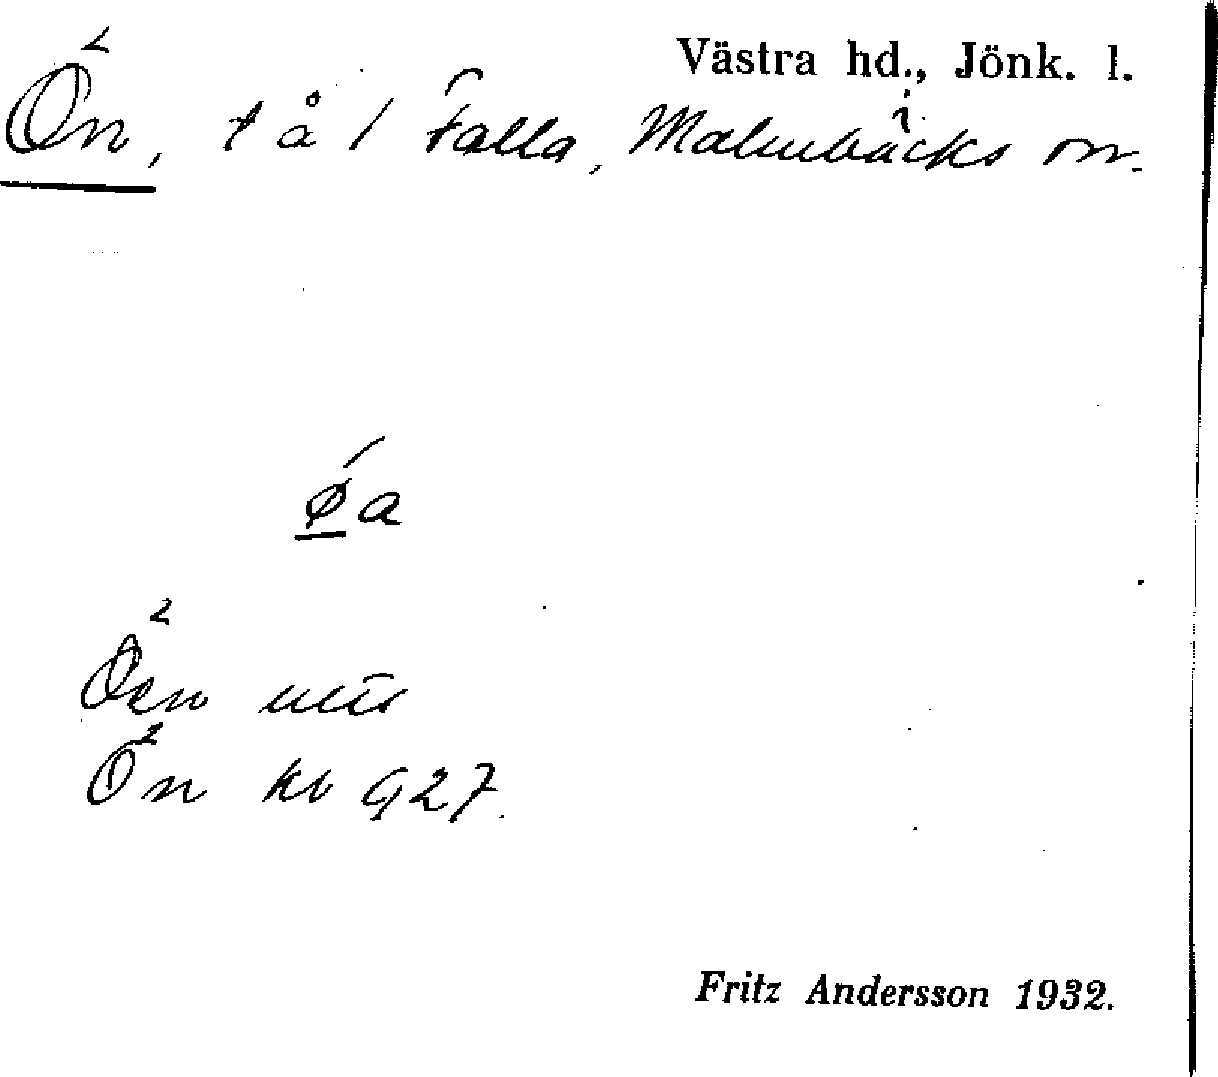 Västra hd., Jönk. l.
Ön, t å / Falla, Malmbäcks sn.
øa
Öen
Ön kb G27.
Fritz Andersson 1932.